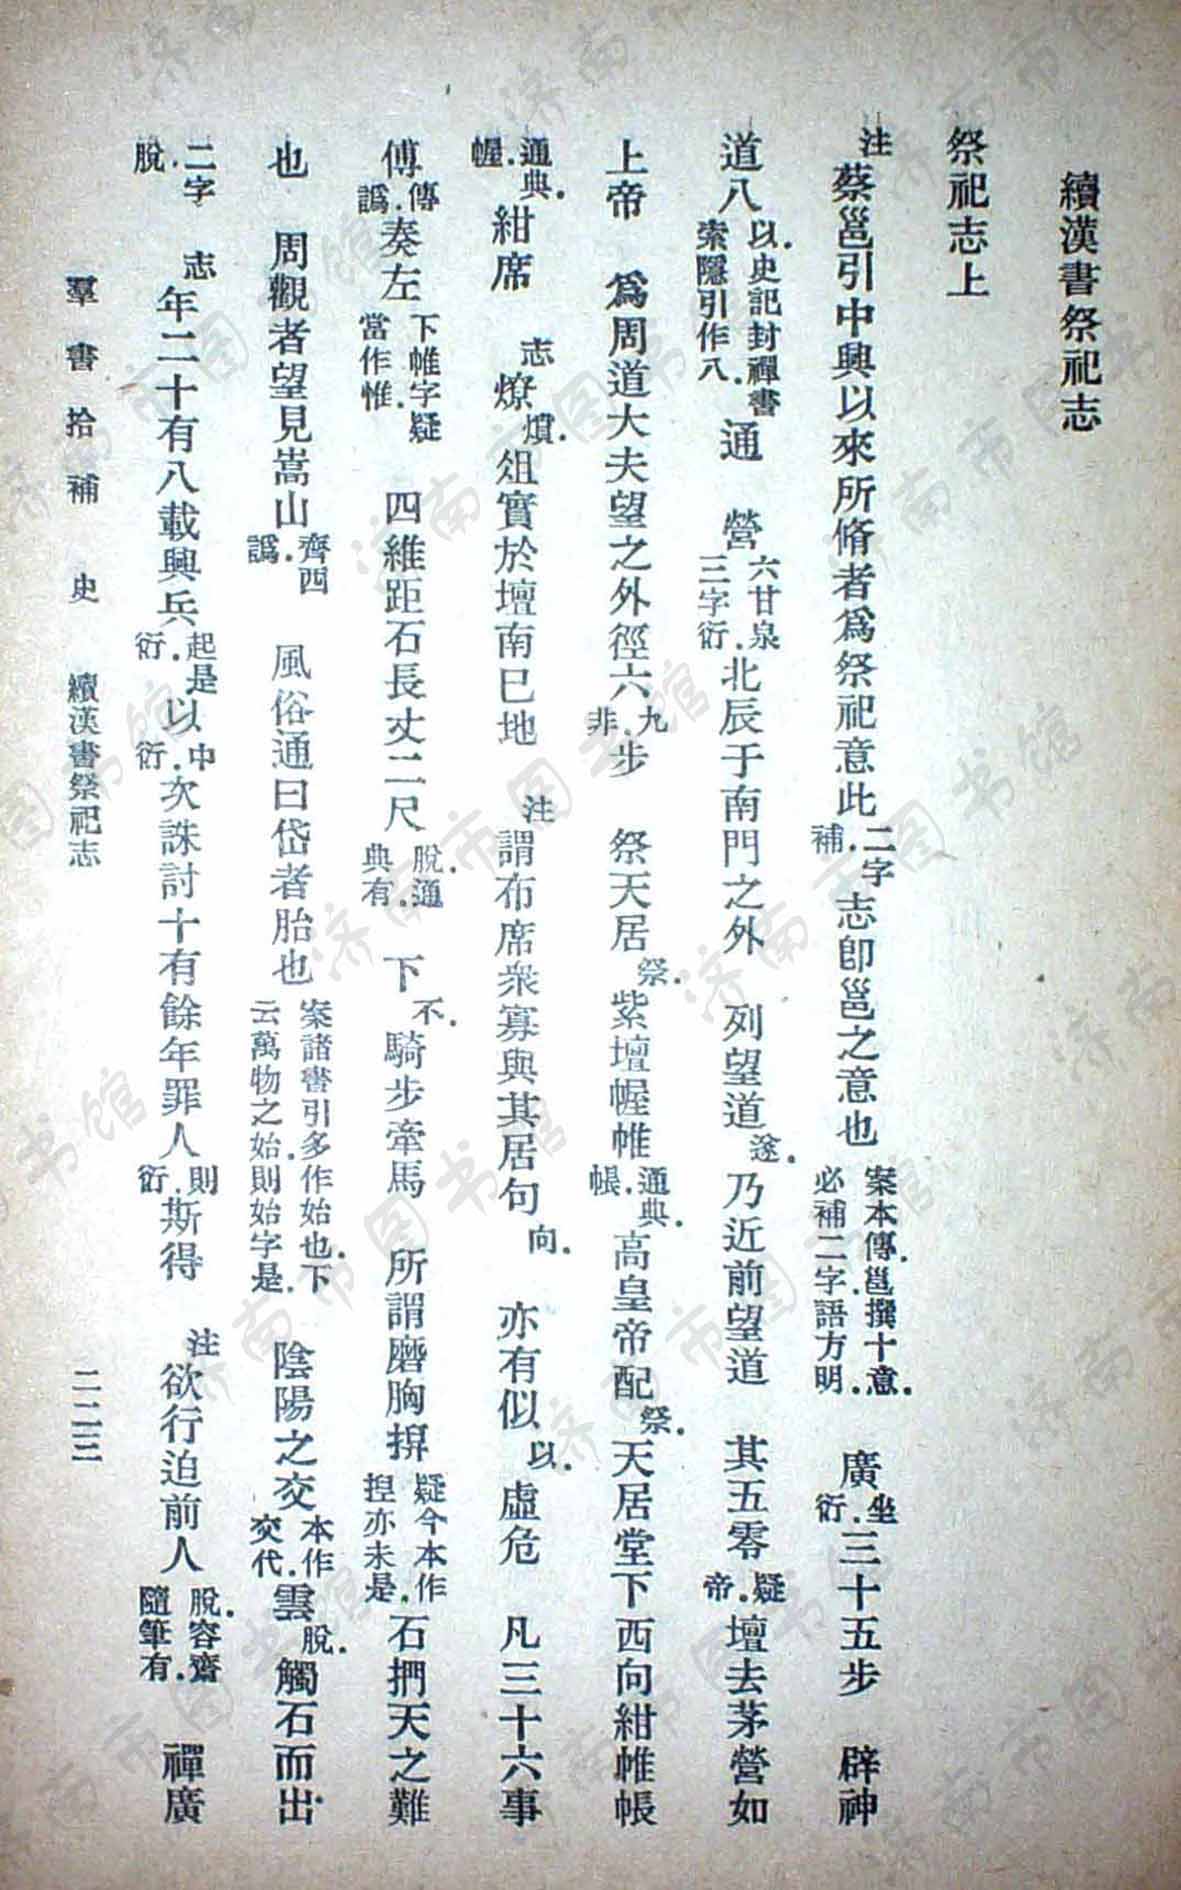 續漢書祭祀志
祭祀志上
注蔡邕引中興以來所脩者爲祭祀意此二字補.志卽邕之意也案本傳.邕撰十意.必補二字.語方明.　廣坐衍.三十五步　辟神
道八以.史記封禪書索隱引作八.通　營六甘泉三字衍.北辰于南門之外　列望道遂.　乃近前望道　其五零疑帝.壇去茅營如
上帝　爲周道大夫望之外徑六九非.步　祭天居祭.紫壇幄帷通典.帳.高皇帝配祭.天居堂下西向紺帷帳
通典.幄.紺席　志燎熕.俎實於壇南巳地　注謂布席衆寡與其居句向.　亦有似以.虛危　凡三十六事
傅傳譌.奏左下帷字疑當作惟.　四維距石長丈二尺脫.通典有.　下不.騎步牽馬　所謂磨胸㨽疑今本作揑亦未是.石捫天之難
也　周觀者望見嵩山齊西譌.　風俗通曰岱者胎也案諸書引多作始也.下云萬物之始.則始字是.　陰陽之交本作交代.雲脫.觸石而出
二字脫.　志年二十有八載興兵起是衍.以中衍.次誅討十有餘年罪人則衍.斯得　注欲行迫前人脫.容齋隨筆有.　禪廣
羣書拾補　史　續漢書祭祀志　二二三